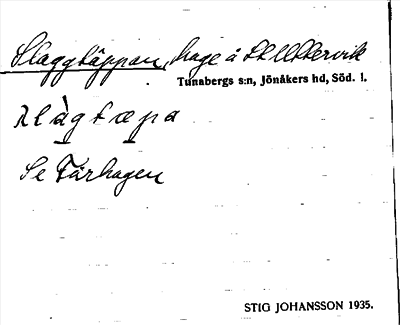 Slaggtäppan, hage å St. Uttervik
Tunabergs s:n, Jönåkers hd, Söd. l.
Se Fårhagen
STIG JOHANSSON 1935.